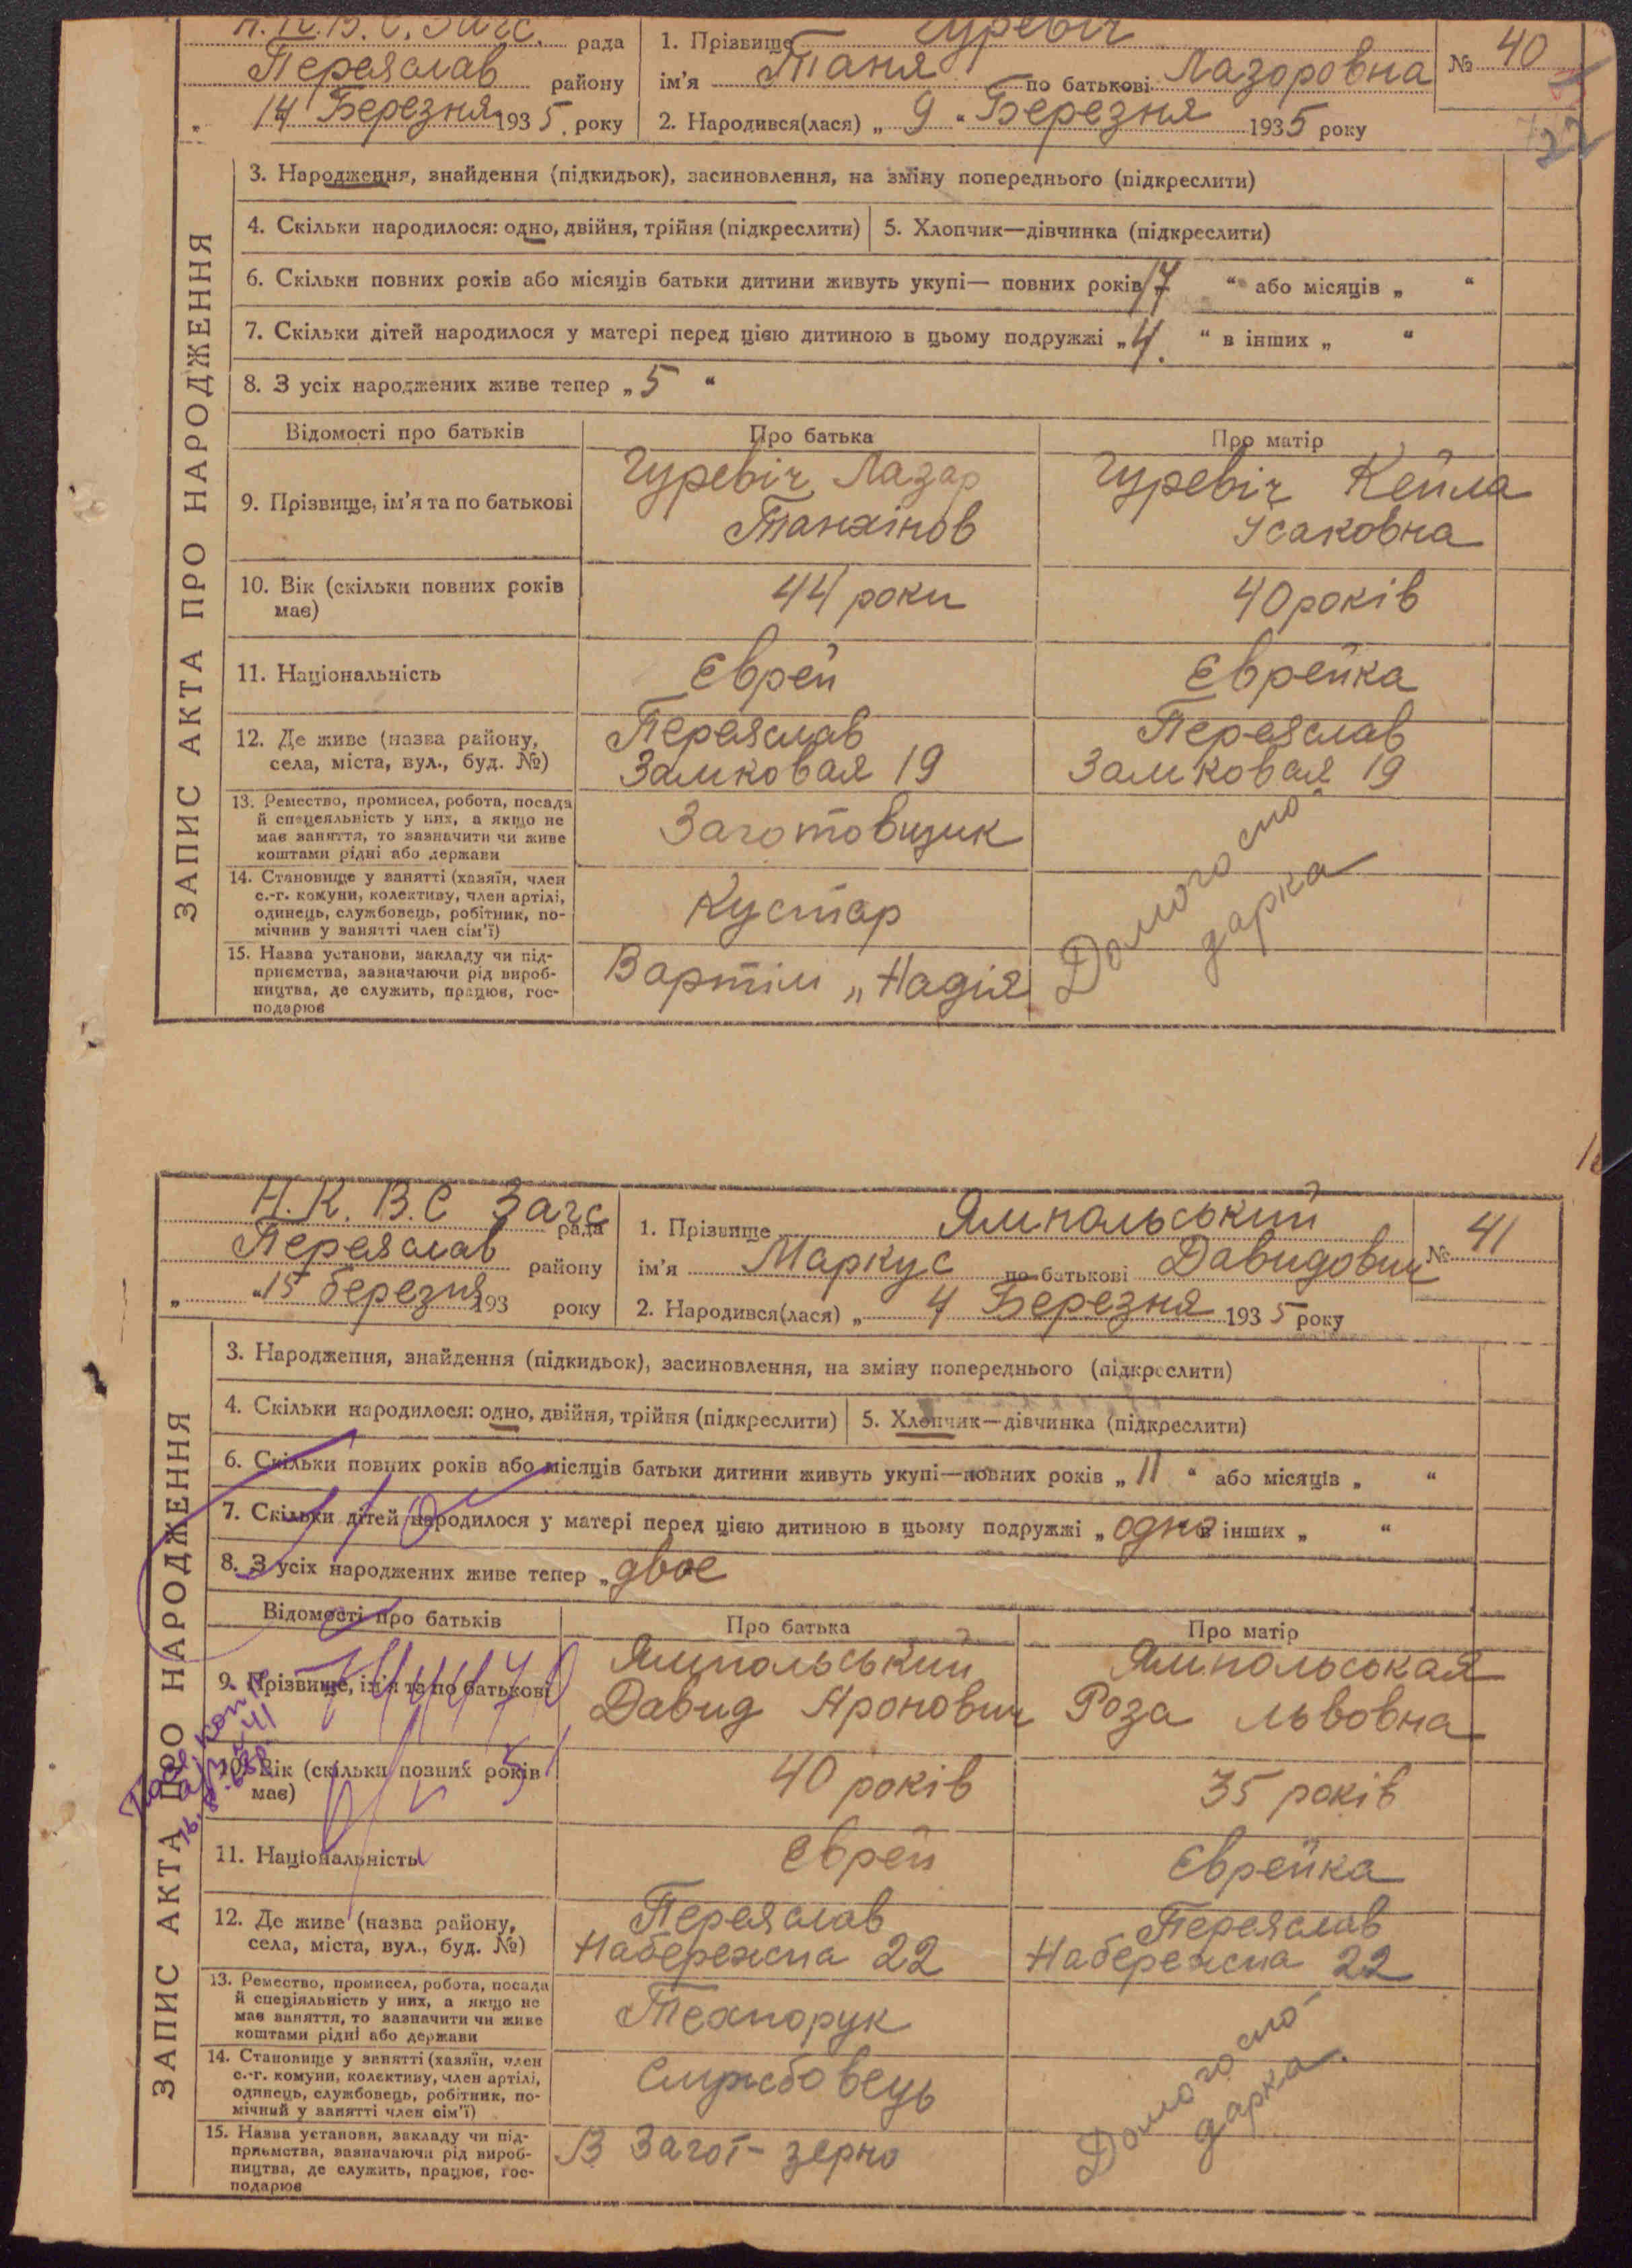 Н.К.В.С. Загс. рада
Переяслав району
" 14 Березня 1935. року
1. Прізвище Гуревіч
ім'я Таня по батькові Лазоровна
№ 40
2. Народився(лася) „ 9 " Березня 1935 року
22
ЗАПИС АКТА ПРО НАРОДЖЕННЯ
3. Народження, знайдення (підкидьок), засиновлення, на зміну попереднього (підкреслити)
4. Скільки народилося: одно, двійня, трійня (підкреслити) 5. Хлопчик—дівчинка (підкреслити)
6. Скільки повних років або місяців батьки дитини живуть укупі— повних років 17 " або місяців „ "
7. Скільки дітей народилося у матері перед цією дитиною в цьому подружжі „ 4. " в інших „ "
8. З усіх народжених живе тепер „ 5 "
Відомості про батьків Про батька Про матір
9. Прізвище, ім'я та по батькові
Гуревіч Лазар
Танхінов
Гуревіч Кейла
Ісаковна
10. Вік (скільки повних років
має)
44 роки
40 років
11. Національність
Єврей
Єврейка
12. Де живе (назва району,
села, міста, вул., буд. №)
Переяслав
Замковая 19
Переяслав
Замковая 19
13. Ремество, промисел, робота, посада
й спецеяльність у них, а якщо не
має заняття, то зазначити чи живе
коштами рідні або держави
Заготовщик
14. Становище у занятті (хазяїн, член
с.-г. комуни, колективу, член артілі,
одинець, службовець, робітник, по-
мічнив у занятті член сім'ї)
Кустар
15. Назва установи, закладу чи під-
приємства, зазначаючи рід вироб-
ництва, де служить, працює, гос-
подарює
В артіли „Надія
Домогоспо-
дарка
Н.К.В.С Загс рада
Переяслав району
„ "15 березня 193 року
1. Прізвище Ямпольський
ім'я Маркус по батькові Давидович
№ 41
2. Народився(лася) „ 4 Березня 1935 року
ЗАПИС АКТА ПРО НАРОДЖЕННЯ
3. Народження, знайдення (підкидьок), засиновлення, на зміну попереднього (підкреслити)
4. Скільки народилося: одно, двійня, трійня (підкреслити) 5. Хлопчик—дівчинка (підкреслити)
6. Скільки повних років або місяців батьки дитини живуть укупі—повних років „ 11 " або місяців „ "
7. Скільки дітей народилося у матері перед цією дитиною в цьому подружжі „ одно в інших „ "
8. З усіх народжених живе тепер „ двоє
Відомості про батьків Про батька Про матір
9. Прізвище, ім'я та по батькові
Ямпольський
Давид Аронович
Ямпольськая
Роза Львовна
10. Вік (скільки повних років
має)
40 років
35 років
11. Національність
Єврей
Єврейка
12. Де живе (назва району,
села, міста, вул., буд. №)
Переяслав
Набережна 22
Переяслав
Набережна 22
13. Ремество, промисел, робота, посада
й спеціяльність у них, а якщо не
має заняття, то зазначити чи живе
коштами рідні або держави
Технорук
14. Становище у занятті (хазяїн, член
с.-г. комуни, колективу, член артілі,
одинець, службовець, робітник, по-
мічний у занятті член сім'ї)
Службовець
15. Назва установи, закладу чи під-
приємства, зазначаючи рід вироб-
ництва, де служить, працює, гос-
подарює
В Загот-зерно
Домогоспо-
дарка.